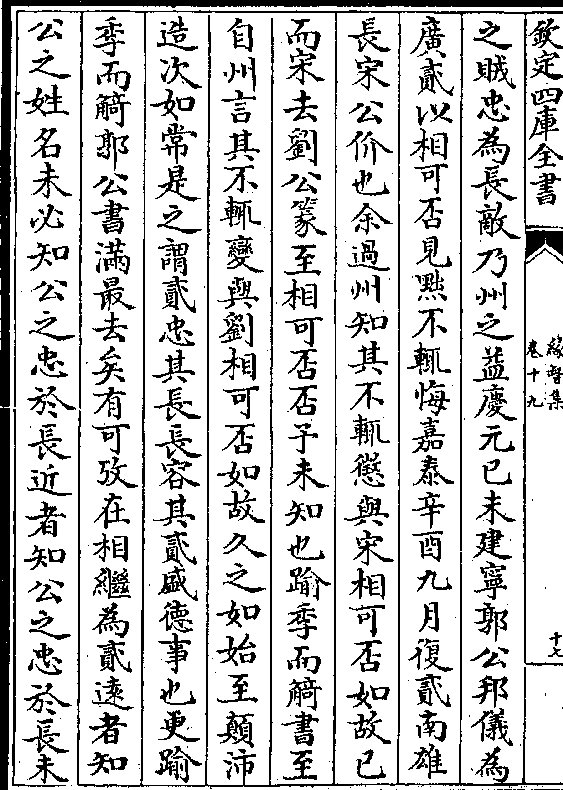 欽定四庫全書
緣督集
卷十九
十七
之賊忠為長敵乃州之益慶元已未建寧郭公邦儀為
廣貳以相可否見㸃不輒悔嘉泰辛酉九月復貳南雄
長宋公价也余過州知其不輒懲與宋相可否如故已
而宋去劉公篆至相可否否予未知也踰季而觭書至
自州言其不輒變與劉相可否如故久之如始至顛沛
造次如常是之謂貳忠其長長容其貳盛德事也更踰
季而觭郭公書滿最去矣有可攷在相繼為貳逺者知
公之姓名未必知公之忠於長近者知公之忠於長未